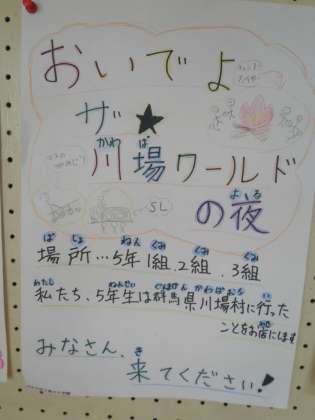 おいでよ
ザ★
川場ワールド
の夜
SL
場所…5年1組、2組、3組
私たち、5年生は群馬県川場村に行った
ことをお店にします
みなさん、
来てください!